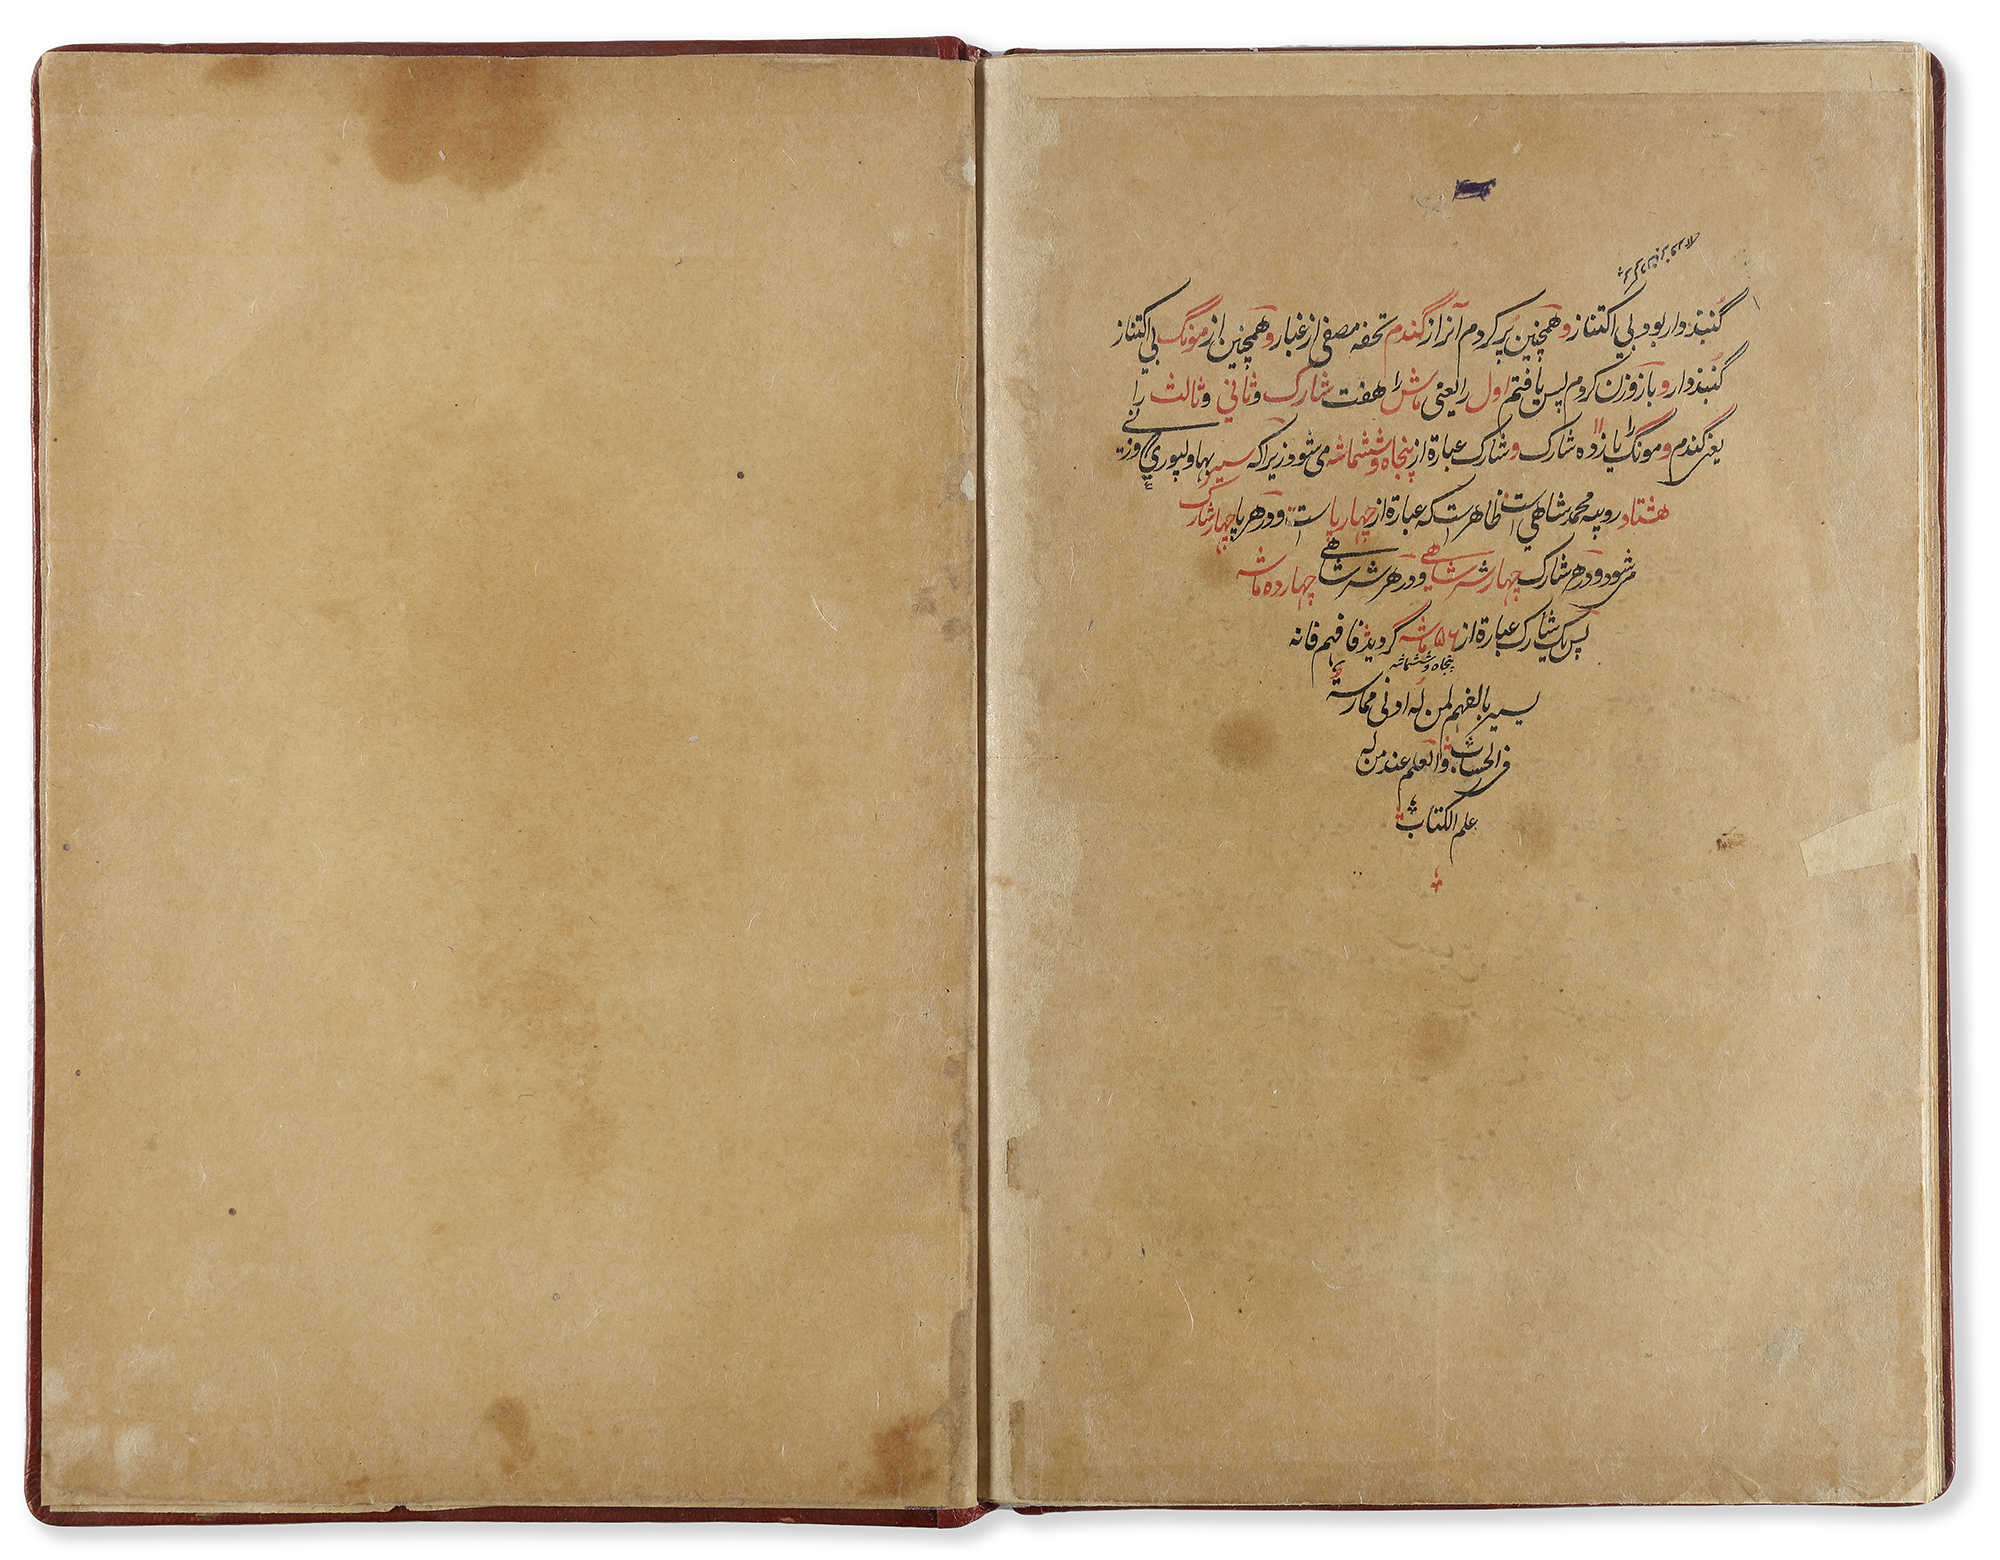 گنبذدار بود بی اکتناز و همچنین پر کردم آنرا از گندم تحفه مصفی از غبار و همچنین از مونگ بی اکتناز
گنبذدار و باز وزن کردم پس یافتم اول را یعنی ماش را هفت شارک و ثانی و ثالث را
یعنی گندم و مونگ را یازده شارک و شارک عبارة از پنجاه و ششماشه می شود زیرا که سیر بهاولپوری وزنے
هشتاد روپیه محمد شاهی است ظاهر است که عبارة از چهار پا است و در هر پا چهار شارک
می شود و در هر شارک چهار شرساهے و در هر شرساهے چهارده ماشه
پس یک شارک عبارة از ۵۶ ماشه گردید فافهم فانه
پنجاه و ششماشه
یسیر بالفهم لمن له ادنی ممارسة
فی الحساب والعلم عند من له
علم الکتاب